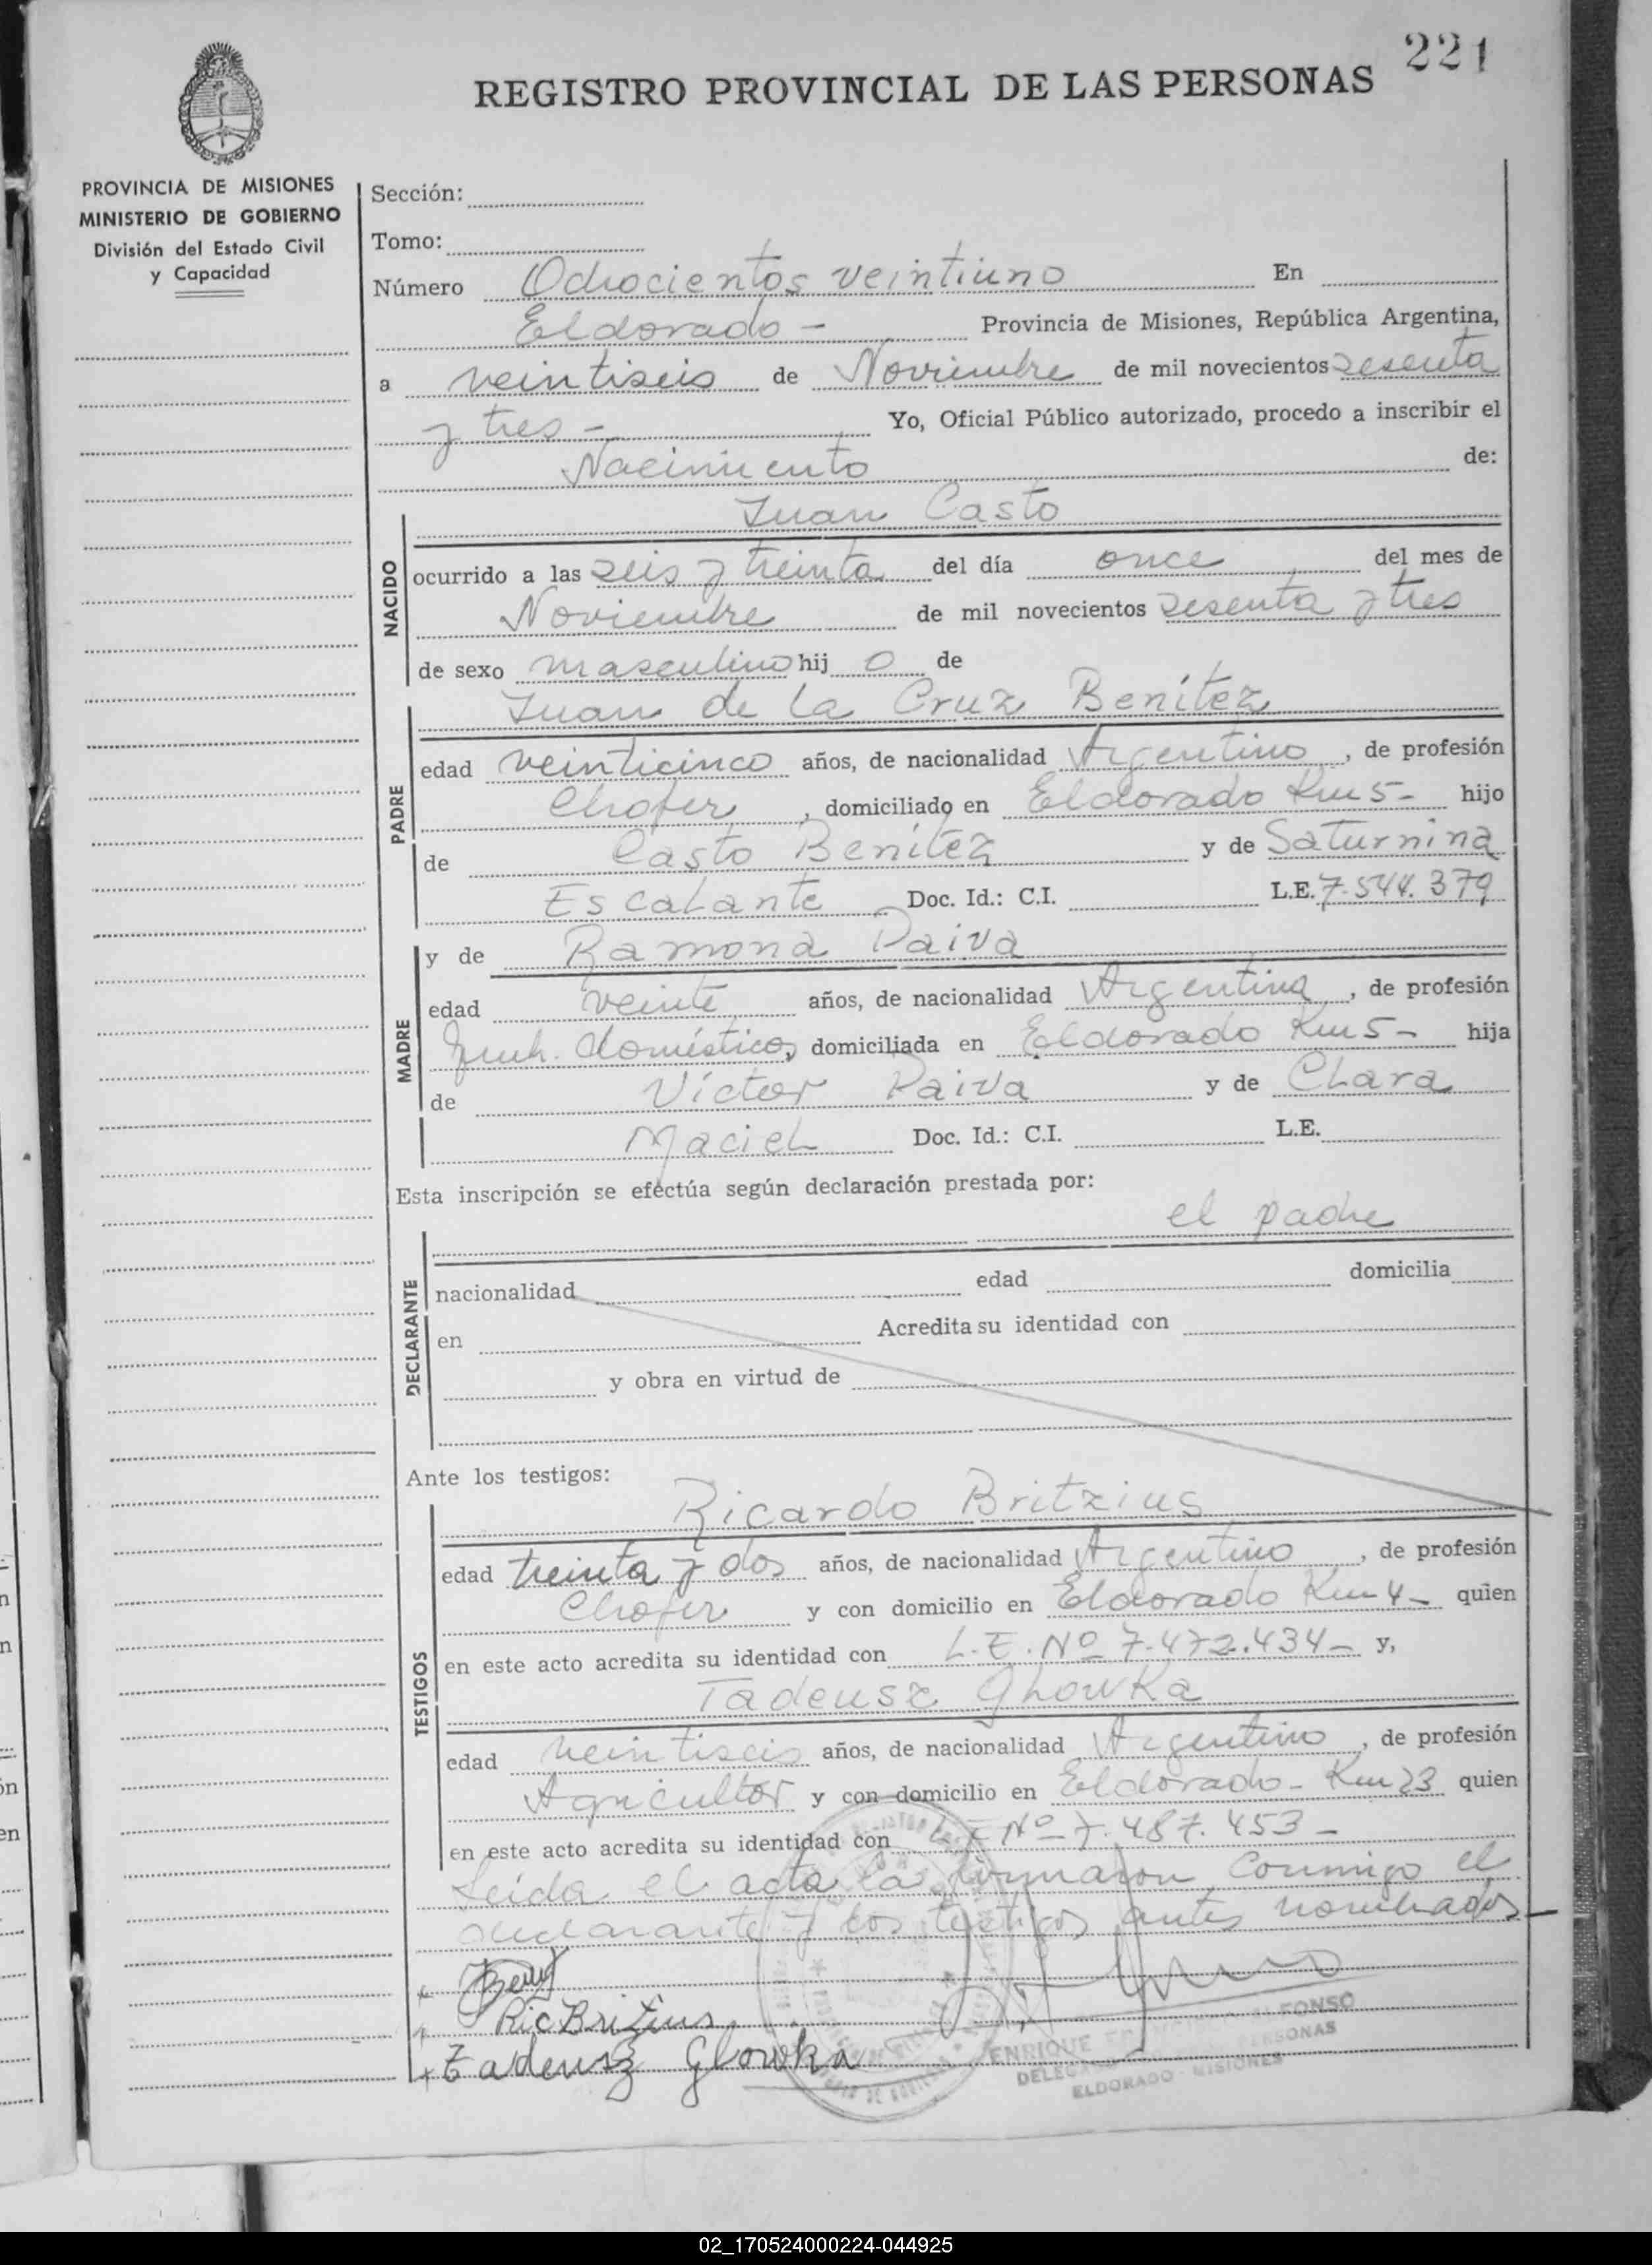 221
REGISTRO PROVINCIAL DE LAS PERSONAS
PROVINCIA DE MISIONES
MINISTERIO DE GOBIERNO
División del Estado Civil
y Capacidad
Sección:
Tomo:
Número Ochocientos veintiuno En
Eldorado - Provincia de Misiones, República Argentina,
a veintiseis de Noviembre de mil novecientos sesenta
y tres - Yo, Oficial Público autorizado, procedo a inscribir el
Nacimiento de:
Juan Casto
NACIDO
ocurrido a las seis y treinta del día once del mes de
Noviembre de mil novecientos sesenta y tres
de sexo masculino hij o de
Juan de la Cruz Benítez
PADRE
edad veinticinco años, de nacionalidad Argentino, de profesión
Chofer, domiciliado en Eldorado Km 5- hijo
de Casto Benítez y de Saturnina
Escalante Doc. Id.: C.I. L.E. 7.544.379
y de Ramona Paiva
MADRE
edad veinte años, de nacionalidad Argentina, de profesión
domésticos, domiciliada en Eldorado Km 5- hija
de Víctor Paiva y de Clara
Maciel Doc. Id.: C.I. L.E.
Esta inscripción se efectúa según declaración prestada por:
el padre
DECLARANTE
nacionalidad edad domicilia
en Acredita su identidad con
y obra en virtud de
Ante los testigos:
Ricardo Britzius
TESTIGOS
edad treinta y dos años, de nacionalidad Argentino, de profesión
Chofer y con domicilio en Eldorado Km 4- quien
en este acto acredita su identidad con L.E. Nº 7.472.434- y,
Tadeusz Glowka
edad veintiseis años, de nacionalidad Argentino, de profesión
Agricultor y con domicilio en Eldorado - Km 23 quien
en este acto acredita su identidad con L.E Nº 7.487.453-
Leida el acta la firmaron conmigo el
declarante y los testigos antes nombrados-
Ric Britzius
Tadeusz Glowka
ENRIQUE
ELDORADO - MISIONES
02_170524000224-044925